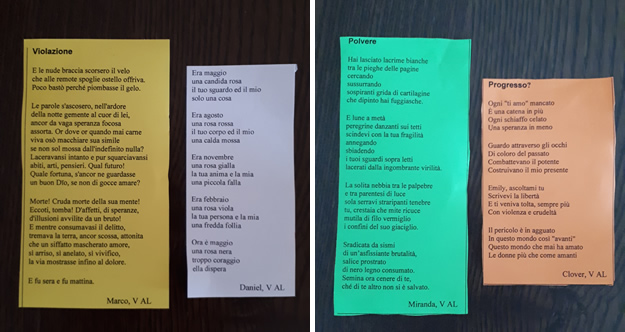 Violazione
E le nude braccia scorsero il velo
che alle remote spoglie ostello offriva.
Poco bastò perché piombasse il gelo.
Le parole s'ascosero, nell'ardore
della notte gemente al cuor di lei,
ancor da vaga speranza focosa
assorta. Or dove or quando mai carne
viva osò macchiare sua simile
se non sol mossa dall'indefinito nulla?
Laceravansi intanto e pur squarciavansi
abiti, arti, pensieri. Qual futuro!
Quale fortuna, s'ancor ne guardasse
un buon DIo, se non di gocce amare?
Morte! Cruda morte della sua mente!
Eccoti, tomba! D'affetti, di speranze,
d'illusioni avvilite da un bruto!
E mentre consumavasi il delitto,
tremava la terra, ancor scossa, attonita
che un siffatto mascherato amore,
si arriso, si anelato, si vivifico,
la via mostrasse infino al dolore.
E fu sera e fu mattina.
Marco, V AL
Era maggio
una candida rosa
il tuo sguardo ed il mio
solo una cosa
Era agosto
una rosa rossa
il tuo corpo ed il mio
una calda mossa
Era novembre
una rosa gialla
la tua anima e la mia
una piccola falla
Era febbraio
una rosa viola
la tua persona e la mia
una fredda follia
Ora è maggio
una rosa nera
troppo coraggio
ella dispera
Daniel, V AL
Polvere
Hai lasciato lacrime bianche
tra le pieghe delle pagine
cercando
sussurrando
sospiranti grida di cartilagine
che dipinto hai fuggiasche.
E lune a metà
peregrine danzanti sui tetti
scindevi con la tua fragilità
annegando
sbiadendo
i tuoi sguardi sopra letti
lacerati dalla ingombrante virilità.
La solita nebbia tra le palpebre
e tra parentesi di luce
sola serravi straripanti tenebre
tu, crestaia che mite ricuce
mutila di filo vermiglio
i confini del suo giaciglio.
Sradicata da sismi
di un'asfissiante brutalità,
salice prostrato
di nero legno consumato.
Semina ora cenere di te,
ché di te altro non si è salvato.
Miranda, V AL
Progresso?
Ogni "ti amo" mancato
È una catena in più
Ogni schiaffo celato
Una speranza in meno
Guardo attraverso gli occhi
Di coloro del passato
Combattevano il potente
Costruivano il mio presente
Emily, ascoltami tu
Scrivevi la libertà
E ti veniva tolta, sempre più
Con violenza e crudeltà
Il pericolo è in agguato
In questo mondo così "avanti"
Questo mondo che mai ha amato
Le donne più che come amanti
Clover, V AL